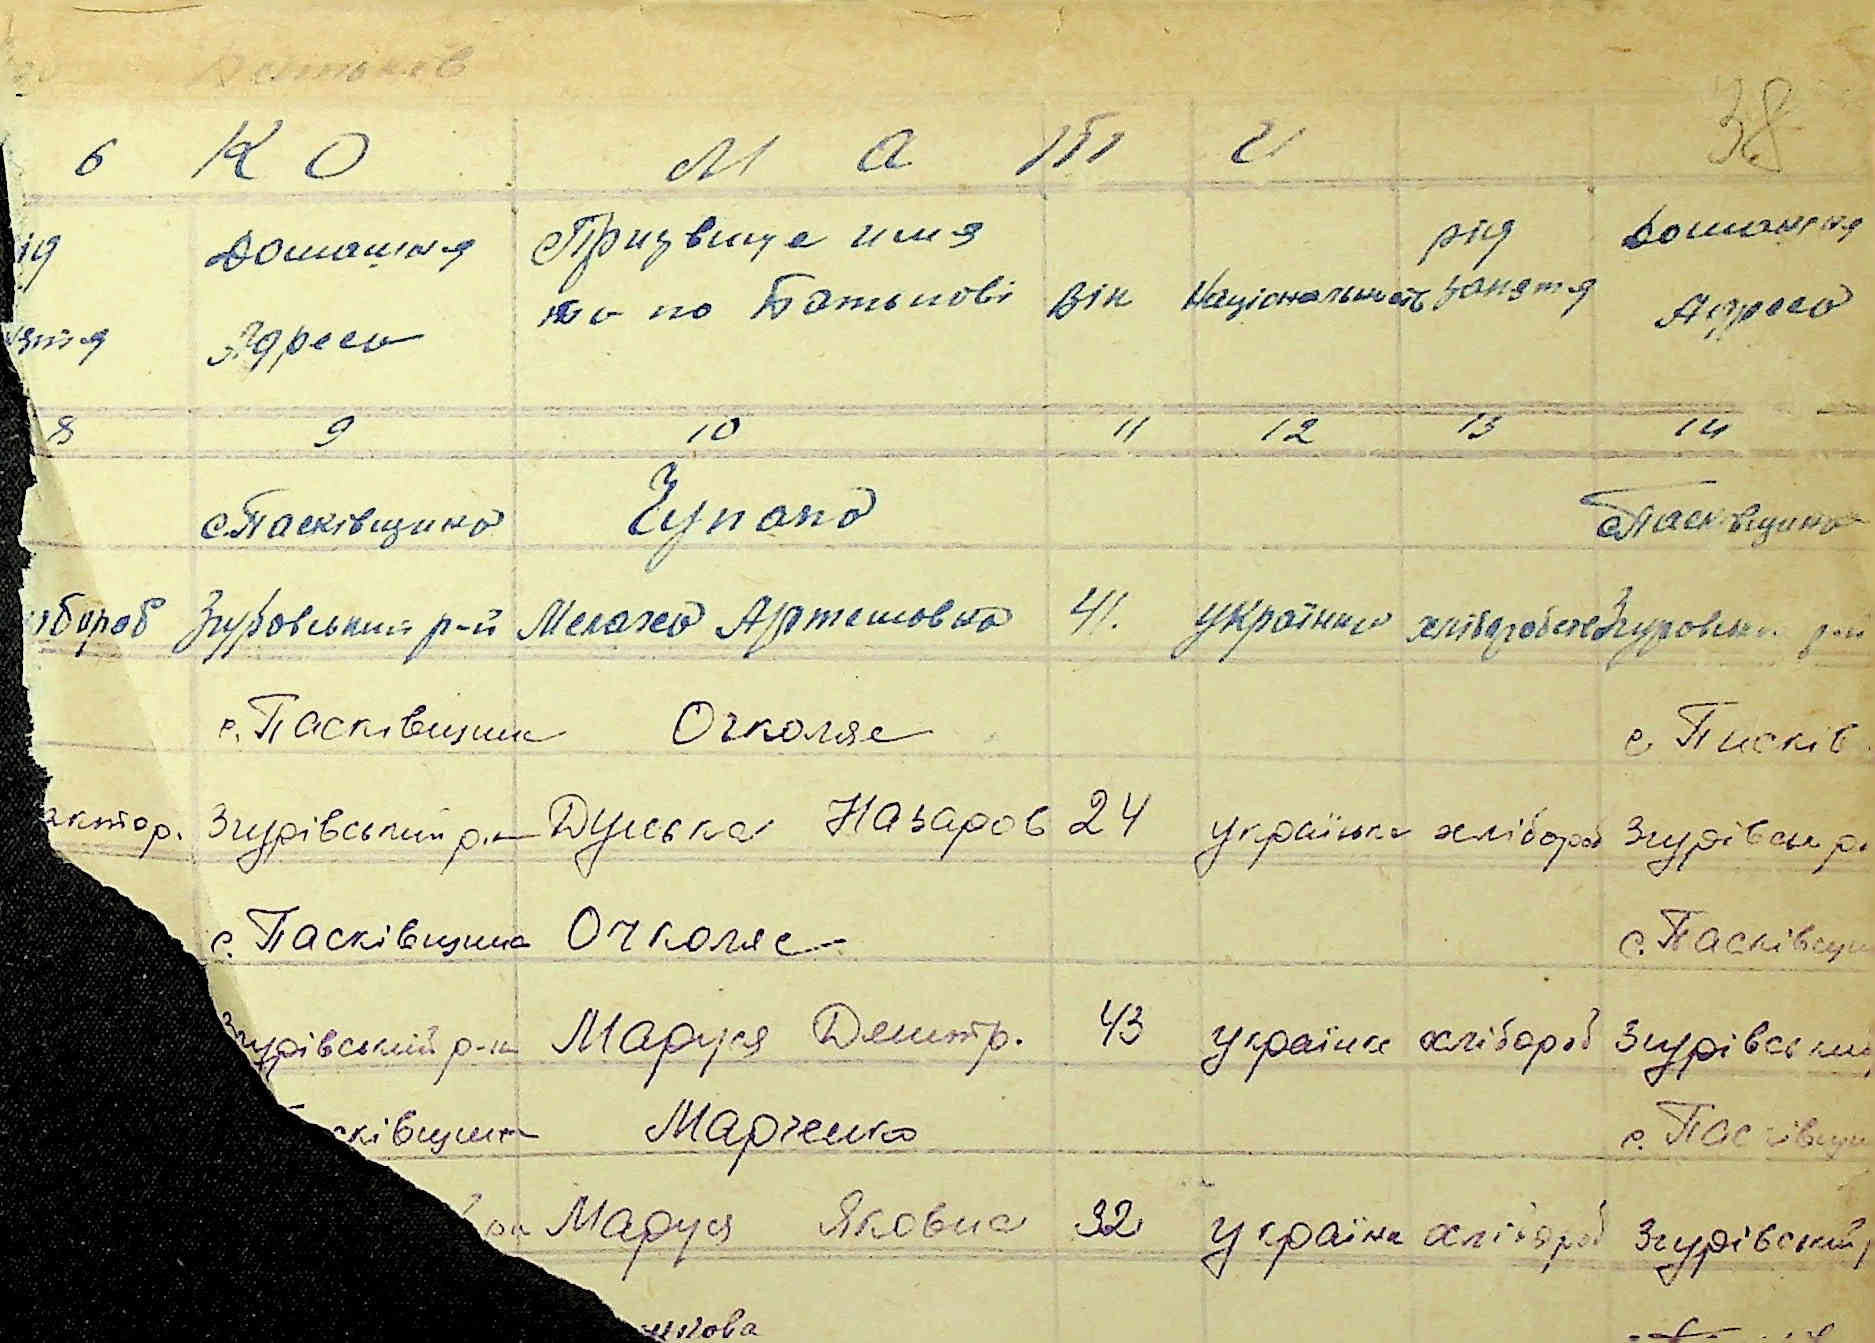 Батьков
38
б К О М а т и
ід Домашня Призвище имя рід Домашня
яття Адреса по Батькові Вік Національність заняття Адреса
8 9 10 11 12 13 14
с. Пасківщина Чупата с. Пасківщина
хлібороб Згуровський р-н Мелахва Артемовна 41. Українка Згуровськ р-н
с. Пасківщина Очколяс с. Пасків
актор. Згурівський р-н Дуська Назаров 24 українка хлібороб Згурівськ р
с. Пасківщина Очколяс с. Пасківщи
Згурівський р-н Маруся Дмитр. 43 українка хлібороб Згурівський
сківщина Марченко с. Пасківщи
Маруся Яковна 32 україна хлібороб Згурівський р